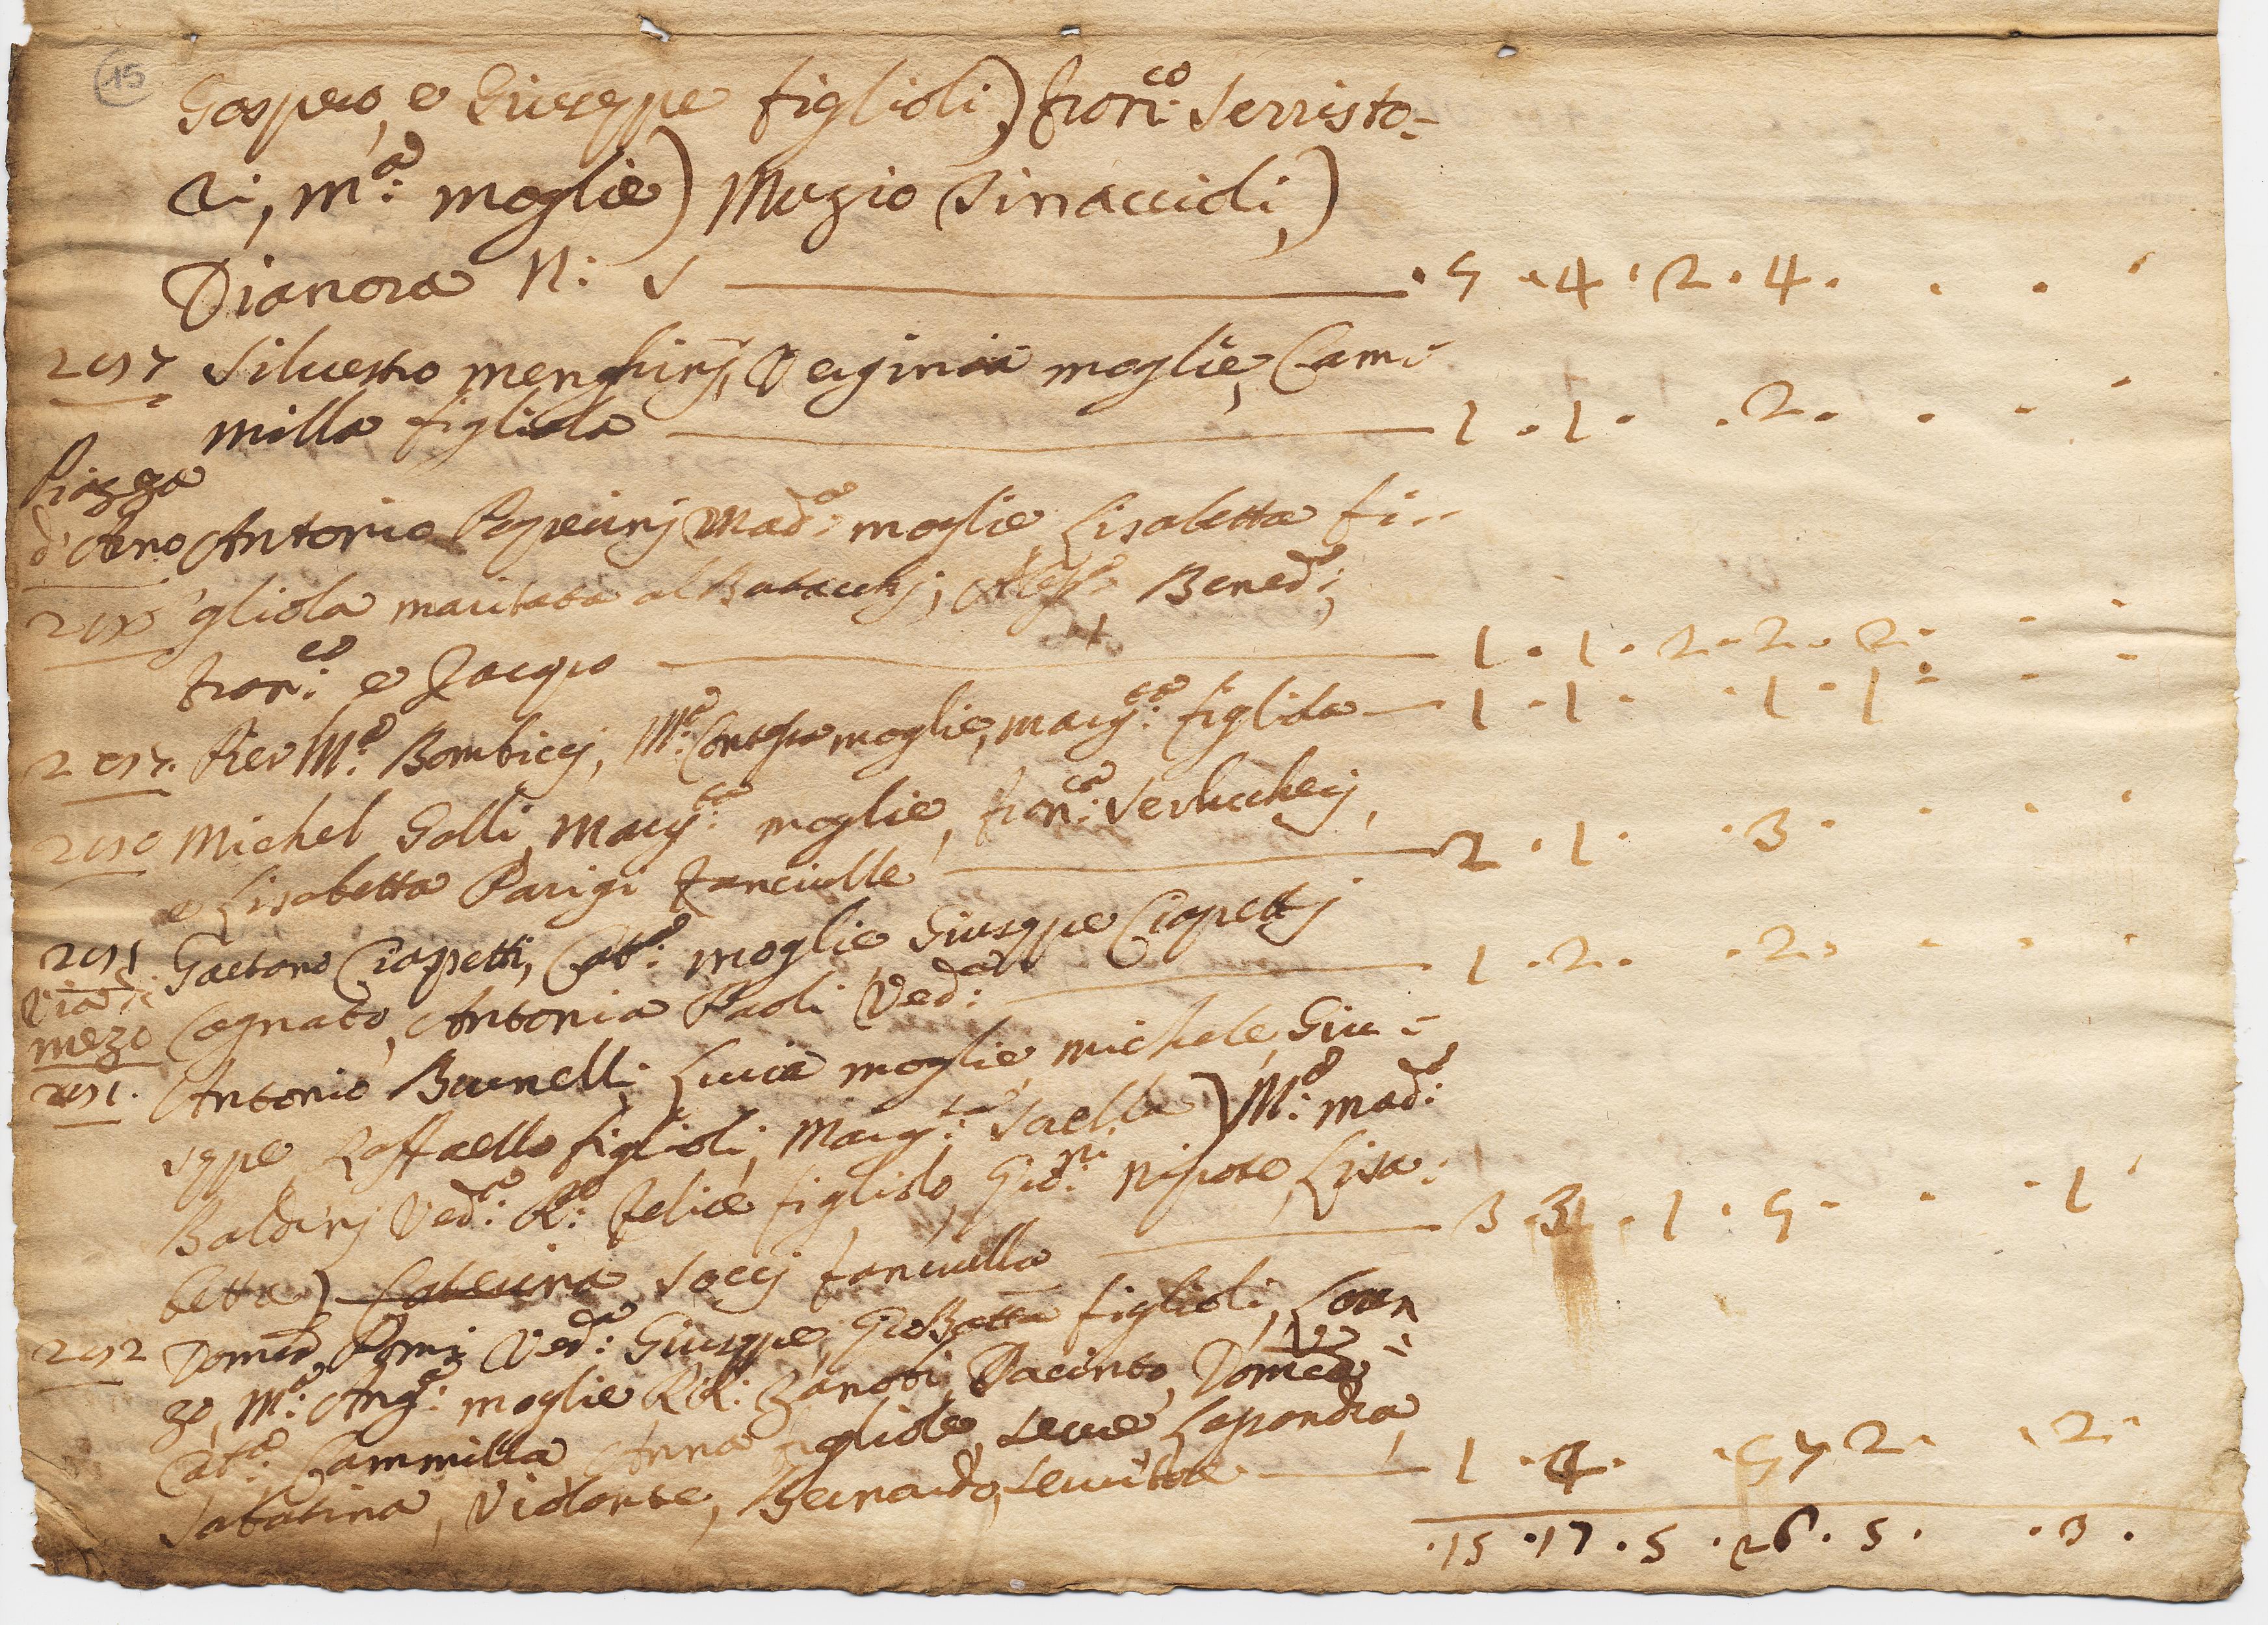 15
Gaspero, e Giuseppe figlioli) Fran:co Serristo=
ri, M:a moglie) Muzio Sinaccioli,)
Dianora N: S . 5 . 4 . 2 . 4 . . .
Silvestro Menghinj, Verginia moglie, Cam=
milla figliola 1 . 1 . . 2 . . .
Piazza
d'Arno Antonio Mad:a moglie Lisabetta fi=
gliola maritata al Bened:
Fran:co e Jacopo 1 . 1 . 2 . 2 . 2 . . .
Pier M:a Bombicj, M:a moglie, Marg:ta figliola 1 . 1 . . 1 . 1 . . .
2190 Michel Galli Marg:ta moglie, Fran:ca Verlucchesj,
e Lisabetta Parigi fanciulle 2 . 1 . . 3 . . .
2191 Gaetano Ciapetti, Cat:a moglie Giuseppe Ciapettj
Via di
mezo Cognato, Antonia Paoli Ved:a 1 . 2 . . 2 . . .
2191. Antonio Brunelli, Lucia moglie, Michele, Giu=
seppe, Raffaello figlioli, Marg:ta Sorella) M:a Mad:a
Baldinj Ved:a R:o Felice figliolo, Gio:ni nipote, Lisa=
betta) Caterina Soccj fanciulla 3 . 3 . 1 . 5 . . . 1
2192 Dom:ca Ved:a Giuseppe, Gio Batta figlioli, Loren
zo, M:a Ang:a moglie Zanobi, Pacinto, Dom:ca
Cat:a Cammilla Anna figliole, serve, Lapandra,
Sabatina, Violante, Bernardo servitore 1 . 4 . . 5 7 2 . . 2 .
. 15 . 17 . 5 . 26 . 5 . . 3 .